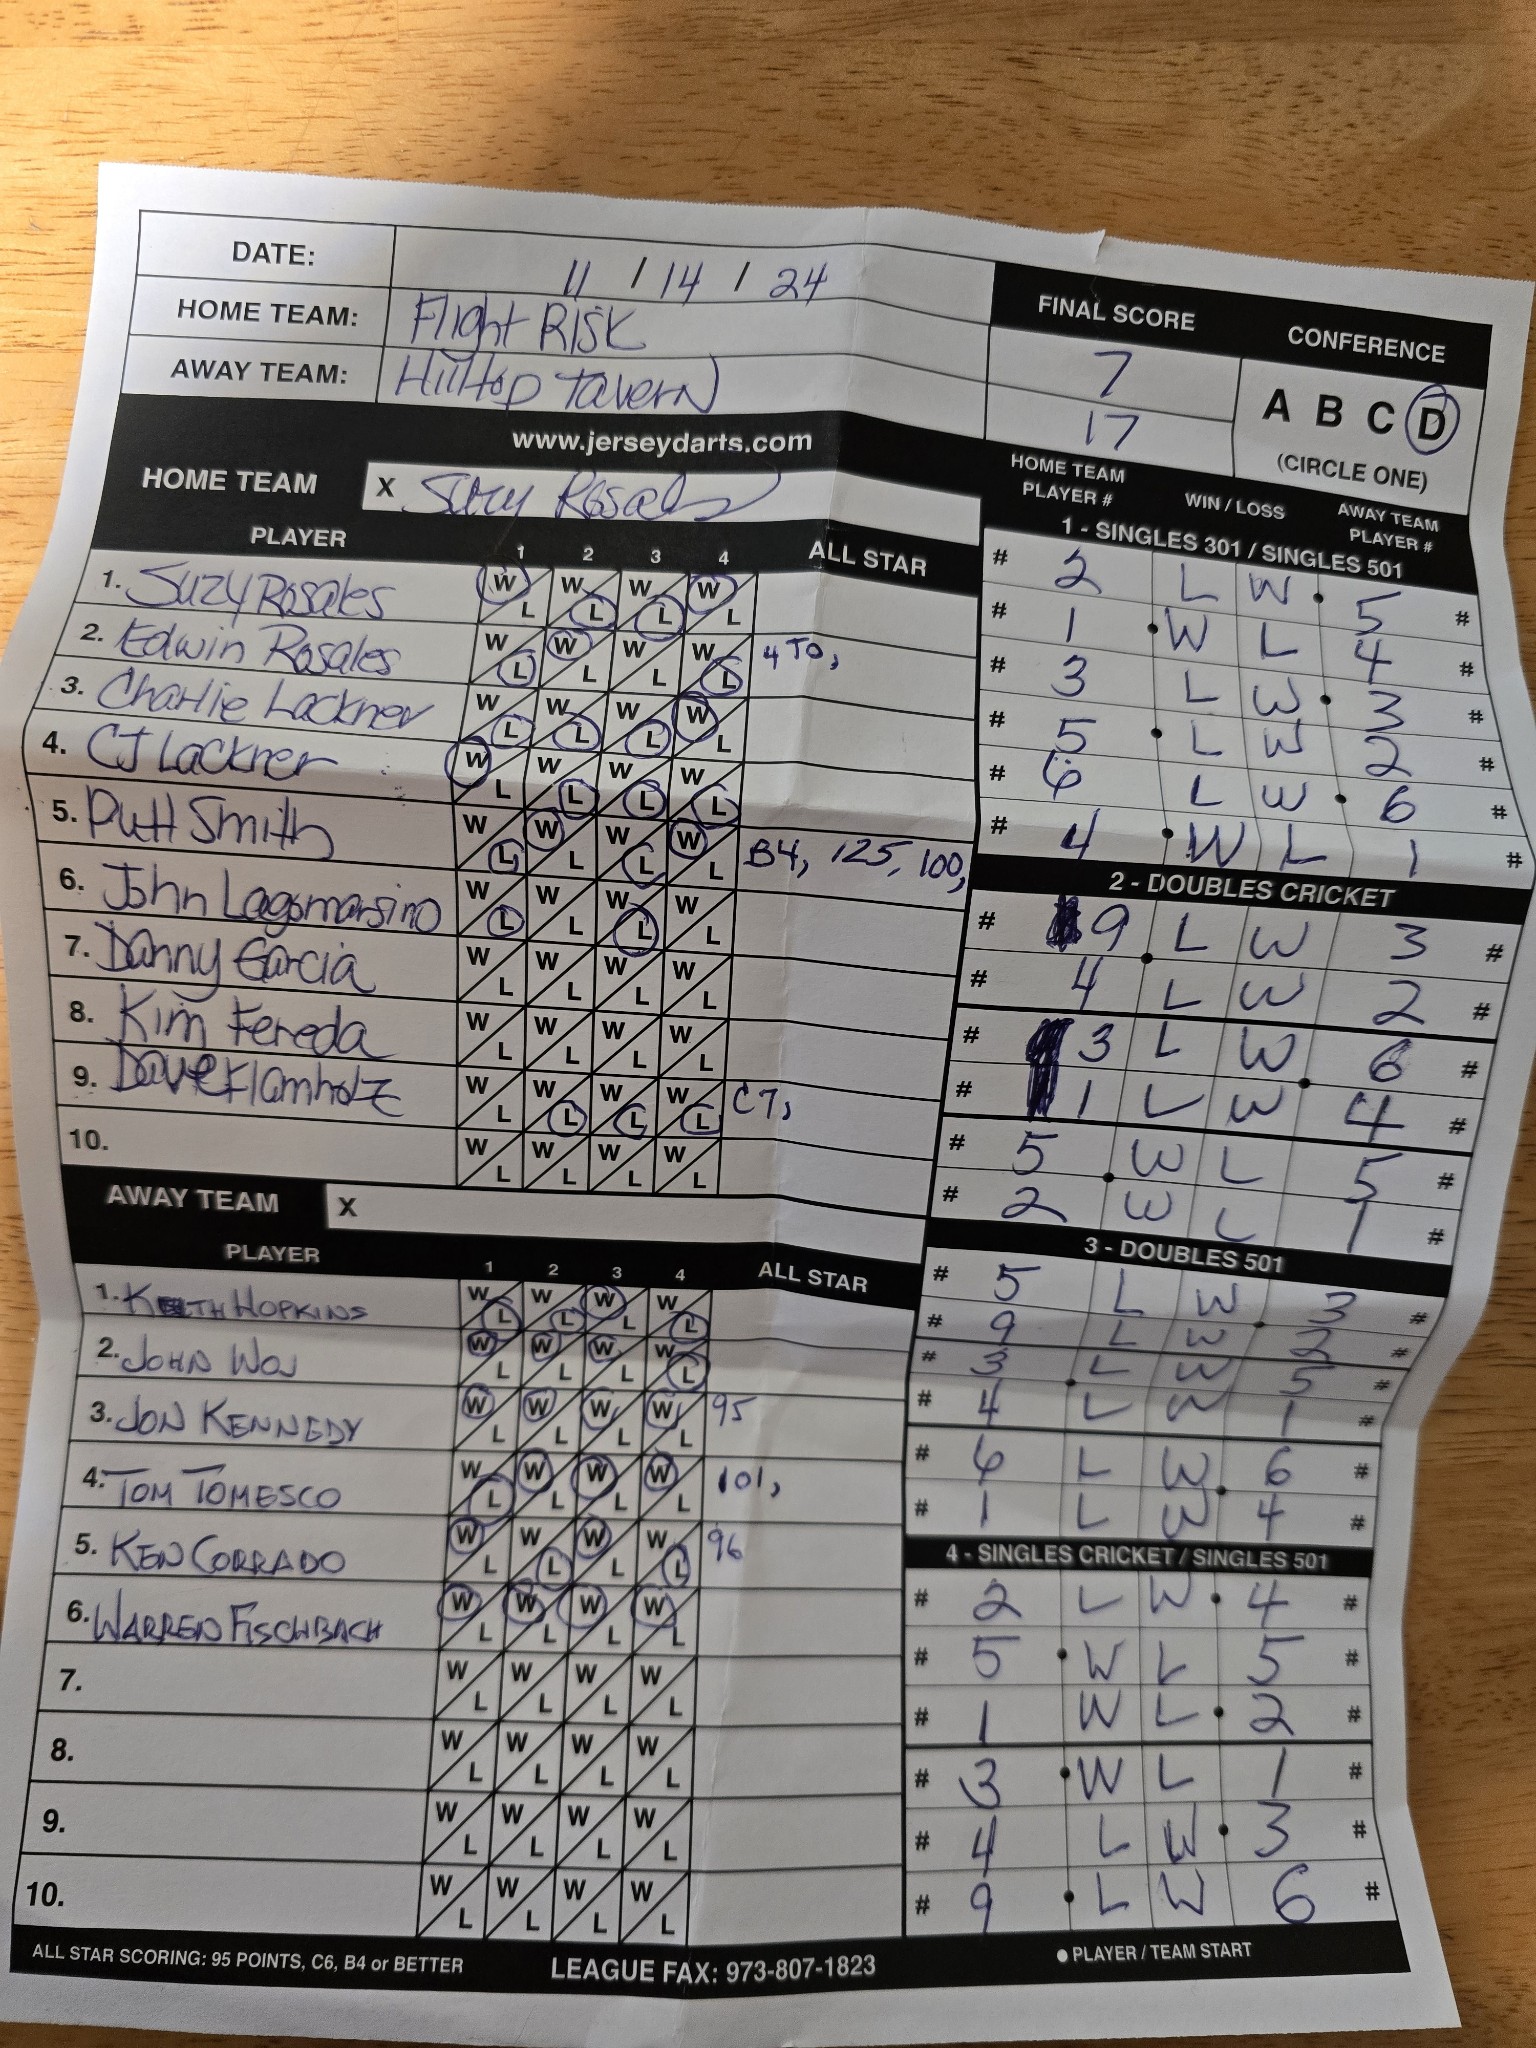 DATE: 11 / 14 / 24
HOME TEAM: Flight Risk
AWAY TEAM: Hilltop Tavern
FINAL SCORE
7
17
CONFERENCE
A B C D
(CIRCLE ONE)
www.jerseydarts.com
HOME TEAM X Suzy Rosales
PLAYER 1 2 3 4 ALL STAR
1. Suzy Rosales W L W L W L W L
2. Edwin Rosales W L W L W L W L 4 TO,
3. Charlie Lackner W L W L W L W L
4. CJ Lackner W L W L W L W L
5. Putt Smith W L W L W L W L B4, 125, 100,
6. John Lagomarsino W L W L W L W L
7. Danny Garcia W L W L W L W L
8. Kim Fereda W L W L W L W L
9. Dave Flamholz W L W L W L W L C7,
10. W L W L W L W L
AWAY TEAM X
PLAYER 1 2 3 4 ALL STAR
1. KEITH HOPKINS W L W L W L W L
2. JOHN WOJ W L W L W L W L
3. JON KENNEDY W L W L W L W L 95
4. TOM TOMESCO W L W L W L W L 101,
5. KEN CORRADO W L W L W L W L 96
6. WARREN FISCHBACH W L W L W L W L
7. W L W L W L W L
8. W L W L W L W L
9. W L W L W L W L
10. W L W L W L W L
ALL STAR SCORING: 95 POINTS, C6, B4 or BETTER
LEAGUE FAX: 973-807-1823
HOME TEAM PLAYER # WIN / LOSS AWAY TEAM PLAYER #
1 - SINGLES 301 / SINGLES 501
# 2 L W 5 #
# 1 W L 4 #
# 3 L W 3 #
# 5 L W 2 #
# 6 L W 6 #
# 4 W L 1 #
2 - DOUBLES CRICKET
# 9 L W 3 #
# 4 L W 2 #
# 3 L W 6 #
# 1 L W 4 #
# 5 W L 5 #
# 2 W L 1 #
3 - DOUBLES 501
# 5 L W 3 #
# 9 L W 2 #
# 3 L W 5 #
# 4 L W 1 #
# 6 L W 6 #
# 1 L W 4 #
4 - SINGLES CRICKET / SINGLES 501
# 2 L W 4 #
# 5 W L 5 #
# 1 W L 2 #
# 3 W L 1 #
# 4 L W 3 #
# 9 L W 6 #
PLAYER / TEAM START